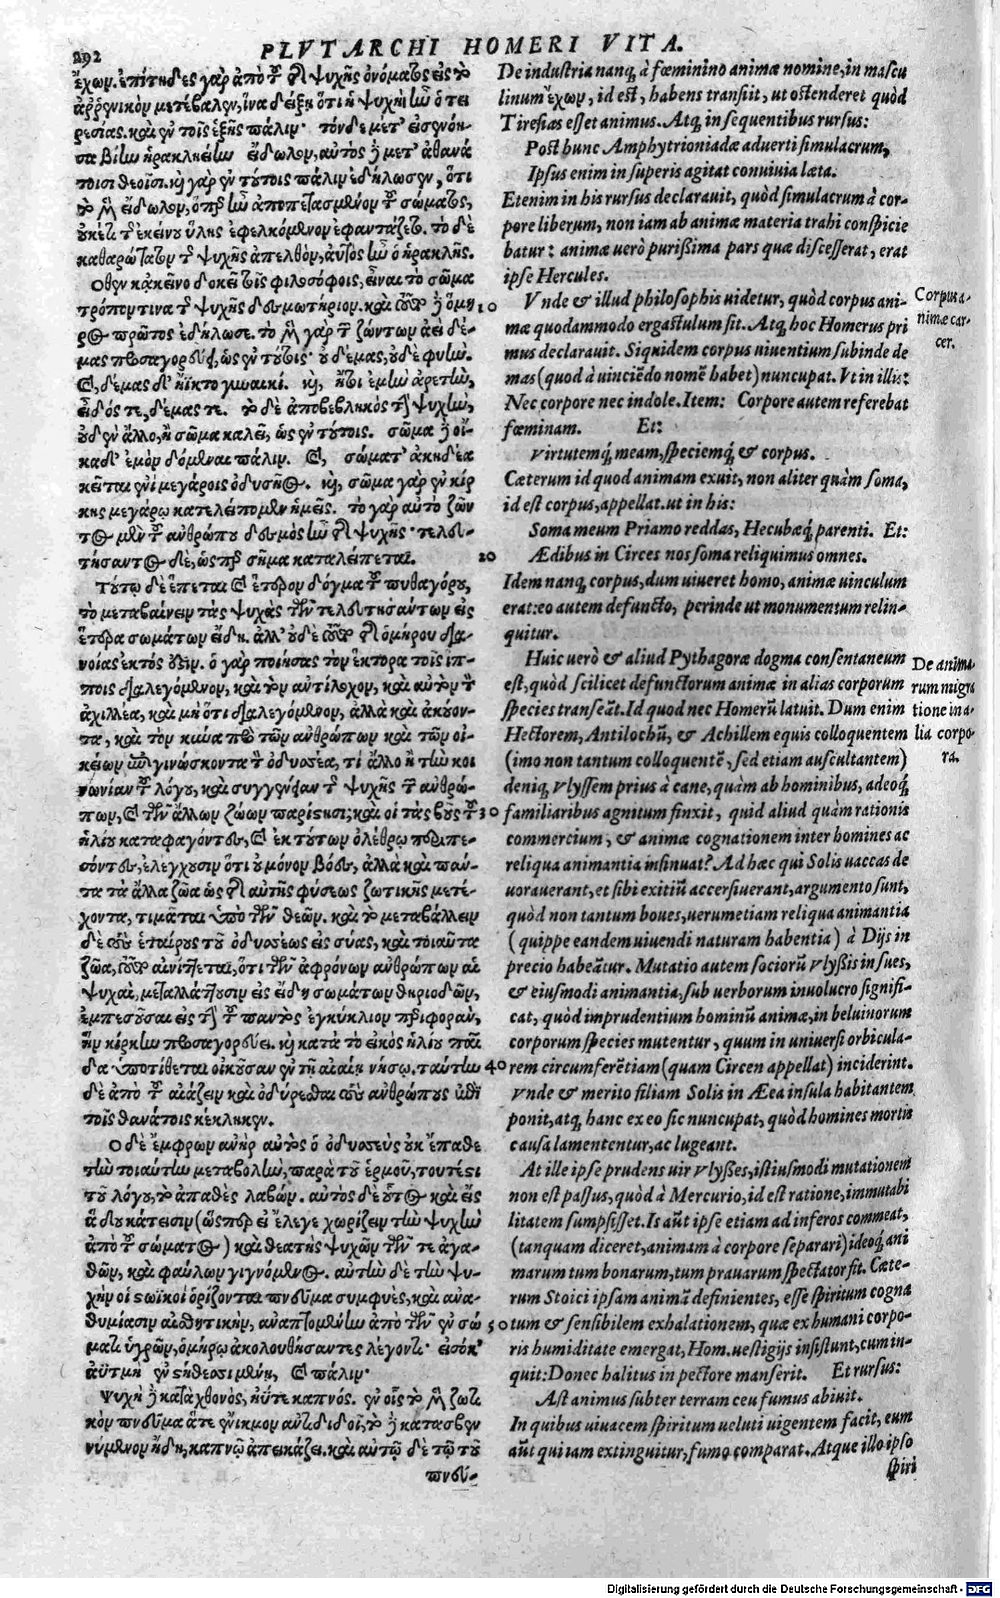 292 PLVTARCHI HOMERI VITA.
ἔχων. ἐπίτηδες γὰρ ἀπὸ τοῦ τῆς ψυχῆς ὀνόματος εἰς τὸ
ἀῤῥενικὸν μετέβαλεν, ἵνα δείξῃ ὅτι ἡ ψυχὴ ἦν ὁ τει
ρεσίας. καὶ ἐν τοῖς ἑξῆς πάλιν· τὸν δὲ μέτ' εἰσενόη-
σα βίην ἡρακληείην εἴδωλον, αὐτὸς δὲ μετ' ἀθανά
τοισι θεοῖσι. καὶ γὰρ ἐν τούτοις πάλιν ἐδήλωσεν, ὅτι
τὸ μὲν εἴδωλον, ὅπερ ἦν ἀποπεπλασμένον τοῦ σώματος,
οὐκέτι τὴν ἐκείνου ὕλης ἐφελκόμενον ἐφαντάζετο. τὸ δὲ
καθαρώτατον τῆς ψυχῆς ἀπελθὸν, αὐτὸς ἦν ὁ ἡρακλῆς.
Οθεν κἀκεῖνο δοκεῖ τοῖς φιλοσόφοις, εἶναι τὸ σῶμα
τρόπον τινα τῆς ψυχῆς δεσμωτήριον. καὶ τοῦτο δὲ ὅμη- 10
ρος πρῶτος ἐδήλωσε. τὸ μὲν γὰρ τῶν ζώντων ἀεὶ δέ-
μας προσαγορεύει, ὡς ἐν τούτοις· οὐ δέμας, οὐδὲ φυήν.
καὶ, δέμας δ' ἤϊκτο γυναικί. καὶ, πᾶσαν ἐμὴν ἀρετὴν,
εἶδός τε, δέμας τε. τὸ δὲ ἀποβεβληκὸς τὴν ψυχὴν,
οὐδὲν ἄλλο, ἢ σῶμα καλεῖ, ὡς ἐν τούτοις. σῶμα δὲ οἴ-
καδ' ἐμὸν δόμεναι πάλιν. καὶ, σώματ' ἀκηδέα
κεῖται ἐνὶ μεγάροις ὀδυσῆος. καὶ, σῶμα γὰρ ἐν κίρ
κης μεγάρῳ κατελείπομεν ἡμεῖς. τὸ γὰρ αὐτὸ ζῶν
τος μὲν τοῦ ἀνθρώπου δεσμὸς ἦν τῆς ψυχῆς· τελευ-
τήσαντος δὲ, ὡσπερ σῆμα καταλείπεται. 20
Τούτῳ δὲ ἕπεται καὶ ἕτερον δόγμα τοῦ πυθαγόρου,
τὸ μεταβαίνειν τὰς ψυχὰς τῶν τελευτησάντων εἰς
ἕτερα σωμάτων εἴδη. ἀλλ' οὐδὲ τοῦτο τῆς ὁμήρου δια-
νοίας ἐκτός ἐστιν. ὁ γὰρ ποιήσας τὸν ἕκτορα τοῖς ἵπ-
ποις διαλεγόμενον, καὶ τὸν ἀντίλοχον, καὶ αὐτὸν τὸν
ἀχιλλέα, καὶ μὴ ὅτι διαλεγόμενον, ἀλλὰ καὶ ἀκούον-
τα, καὶ τὸν κύνα πρὸ τῶν ἀνθρώπων καὶ τῶν οἰ-
κείων ἐπιγινώσκοντα τὸν ὀδυσσέα, τί ἄλλο ἢ τὴν κοι
νωνίαν τοῦ λόγου, καὶ συγγένειαν τῆς ψυχῆς τῶν ἀνθρώ-
πων, καὶ τῶν ἄλλων ζώων παρίστησι; καὶ οἱ τὰς βοῦς τοῦ 30
ἡλίου καταφαγόντες, καὶ ἐκ τούτων ὀλέθρῳ περιπε-
σόντες, ἐλέγχουσιν ὅτι οὐ μόνον βόες, ἀλλὰ καὶ πάν-
τα τὰ ἄλλα ζῶα ὡς τῆς αὐτῆς φύσεως ζωτικῆς μετέ-
χοντα, τιμᾶται ὑπὸ τῶν θεῶν. καὶ τὸ μεταβάλλειν
δὲ τοὺς ἑταίρους τοῦ ὀδυσσέως εἰς σύας, καὶ τοιαῦτα
ζῶα, τοῦτο αἰνίττεται, ὅτι τῶν ἀφρόνων ἀνθρώπων αἱ
ψυχαὶ, μεταλλάττουσιν εἰς εἴδη σωμάτων θηριωδῶν,
ἐμπεσοῦσαι εἰς τὴν τοῦ παντὸς ἐγκύκλιον περιφορὰν,
ἣν κίρκην προσαγορεύει. καὶ κατὰ τὸ εἰκὸς ἡλίου παῖ
δα ὑποτίθεται οἰκοῦσαν ἐν τῇ αἰαίῃ νήσῳ. ταύτην 40
δὲ ἀπὸ τοῦ αἰάζειν καὶ ὀδύρεσθαι τοὺς ἀνθρώπους ἐπὶ
τοῖς θανάτοις κέκληκεν.
Ο δὲ ἔμφρων ἀνὴρ αὐτὸς ὁ ὀδυσσεὺς οὐκ ἔπαθε
τὴν τοιαύτην μεταβολὴν, παρὰ τοῦ ἑρμοῦ, τουτέστι
τοῦ λόγου, τὸ ἀπαθὲς λαβών. αὐτὸς δὲ οὗτος καὶ εἰς
ᾅδου κάτεισιν (ὥσπερ εἰ ἔλεγε χωρίζειν τὴν ψυχὴν
ἀπὸ τοῦ σώματος) καὶ θεατὴς ψυχῶν τῶν τε ἀγα-
θῶν, καὶ φαύλων γιγνόμενος. αὐτὴν δὲ τὴν ψυ-
χὴν οἱ στωϊκοὶ ὁρίζονται πνεῦμα συμφυὲς, καὶ ἀνα-
θυμίασιν αἰσθητικὴν, ἀναπτομένην ἀπὸ τῶν ἐν σώ 50
ματι ὑγρῶν, ὁμήρῳ ἀκολουθήσαντες λέγοντι· εἰσόκ'
ἀϋτμὴ ἐν στήθεσι μένῃ, καὶ πάλιν·
Ψυχὴ δὲ κατὰ χθονός, ἠΰτε καπνός. ἐν οἷς τὸ μὲν ζωτι
κὸν πνεῦμα ἅτε ἔνικμον ἀντιδίδοι, τὸ δὲ κατασβεν
νύμενον ἤδη, καπνῷ ἀπεικάζει. καὶ αὐτῷ δὲ τῷ τοῦ
πνεύ-
De industria nanq́, à fœminino animæ nomine, in mascu
linum ἔχων, id est, habens transiit, ut ostenderet quòd
Tiresias esset animus. Atq́, in sequentibus rursus:
Post hunc Amphytrioniadæ aduerti simulacrum,
Ipsus enim in superis agitat conuiuia læta.
Etenim in his rursus declarauit, quòd simulacrum à cor-
pore liberum, non iam ab animæ materia trahi conspicie
batur: animæ uerò purißima pars quæ discesserat, erat
ipse Hercules.
Vnde & illud philosophis uidetur, quòd corpus ani-
mæ quodammodo ergastulum sit. Atq́, hoc Homerus pri
mus declarauit. Siquidem corpus uiuentium subinde de
mas (quod à uinciẽdo nomẽ habet) nuncupat. Vt in illis:
Nec corpore nec indole. Item: Corpore autem referebat
fœminam. Et:
Virtutemq́, meam, speciemq́, & corpus.
Cæterum id quod animam exuit, non aliter quàm soma,
id est corpus, appellat. ut in his:
Soma meum Priamo reddas, Hecubæq́, parenti. Et:
Ædibus in Circes nos soma reliquimus omnes.
Idem nanq́, corpus, dum uiueret homo, animæ uinculum
erat: eo autem defuncto, perinde ut monumentum relin-
quitur.
Huic uerò & aliud Pythagoræ dogma consentaneum
est, quòd scilicet defunctorum animæ in alias corporum
species transeãt. Id quod nec Homerũ latuit. Dum enim
Hectorem, Antilochũ, & Achillem equis colloquentem
(imo non tantum colloquentẽ, sed etiam auscultantem)
deniq́, Vlyssem prius à cane, quàm ab hominibus, adeoq́,
familiaribus agnitum finxit, quid aliud quàm rationis
commercium, & animæ cognationem inter homines ac
reliqua animantia insinuat? Ad hæc qui Solis uaccas de
uorauerant, et sibi exitiũ accersiuerant, argumento sunt,
quòd non tantum boues, uerumetiam reliqua animantia
(quippe eandem uiuendi naturam habentia) à Dijs in
precio habeãtur. Mutatio autem sociorũ Vlyßis in sues,
& eiusmodi animantia, sub uerborum inuolucro signifi-
cat, quòd imprudentium hominũ animæ, in beluinorum
corporum species mutentur, quum in uniuersi orbicula-
rem circumferẽtiam (quam Circen appellat) inciderint.
Vnde & merito filiam Solis in Æea insula habitantem
ponit, atq́, hanc ex eo sic nuncupat, quòd homines mortis
causa lamententur, ac lugeant.
At ille ipse prudens uir Vlysses, istiusmodi mutationem
non est passus, quòd à Mercurio, id est ratione, immutabi
litatem sumpsisset. Is aũt ipse etiam ad inferos commeat,
(tanquam diceret, animam à corpore separari) ideoq́, ani
marum tum bonarum, tum prauarum spectator fit. Cæte-
rum Stoici ipsam animã definientes, esse spiritum cogna
tum & sensibilem exhalationem, quæ ex humani corpo-
ris humiditate emergat, Hom. uestigijs insistunt, cum in-
quit: Donec halitus in pectore manserit. Et rursus:
Ast animus subter terram ceu fumus abiuit.
In quibus uiuacem spiritum ueluti uigentem facit, eum
aũt qui iam extinguitur, fumo comparat. Atque illo ipso
spiri
Corpus a-
nimæ car-
cer.
De anima-
rum migra
tione in a-
lia corpo-
ra.
Digitalisierung gefördert durch die Deutsche Forschungsgemeinschaft - DFG